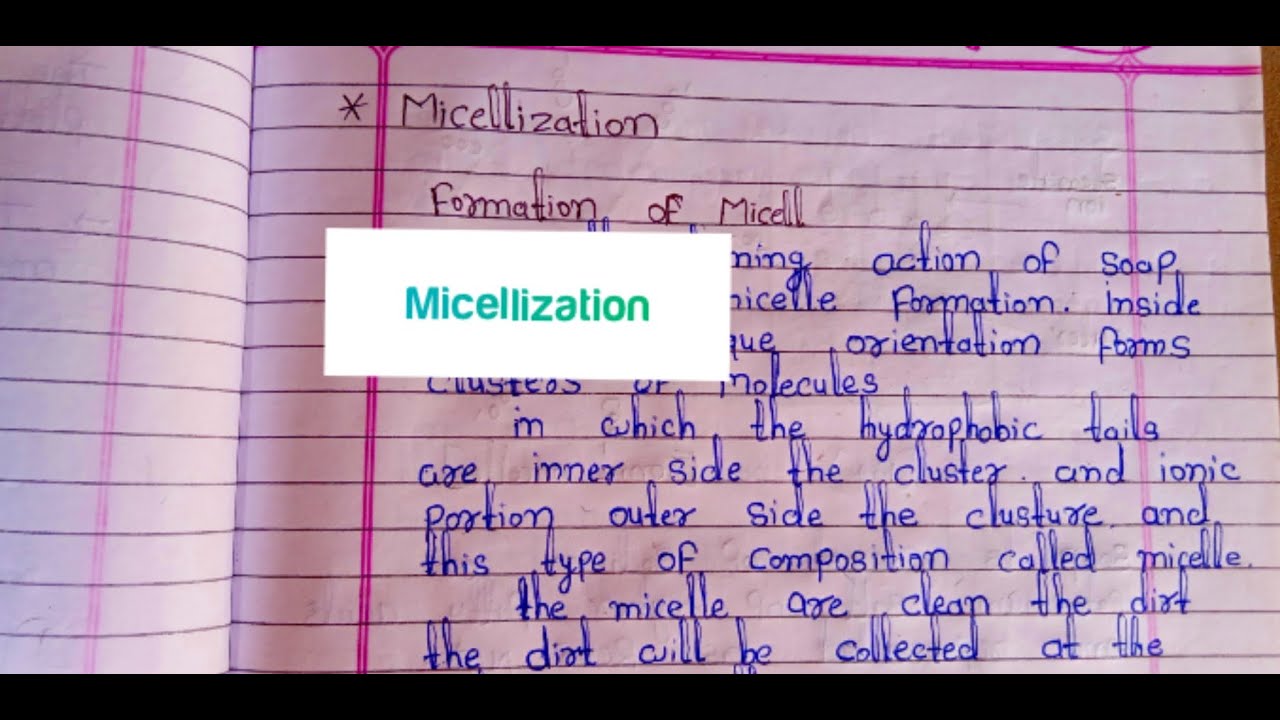 * Micellization
Formation of Micell
ning action of soap
micelle formation. Inside
que orientation forms
Micellization
clusters of molecules
in which the hydrophobic tails
are inner side the cluster. and ionic
portion outer side the clusture and
this type of composition called micelle.
the micelle are clean the dirt
the dirt will be collected at the